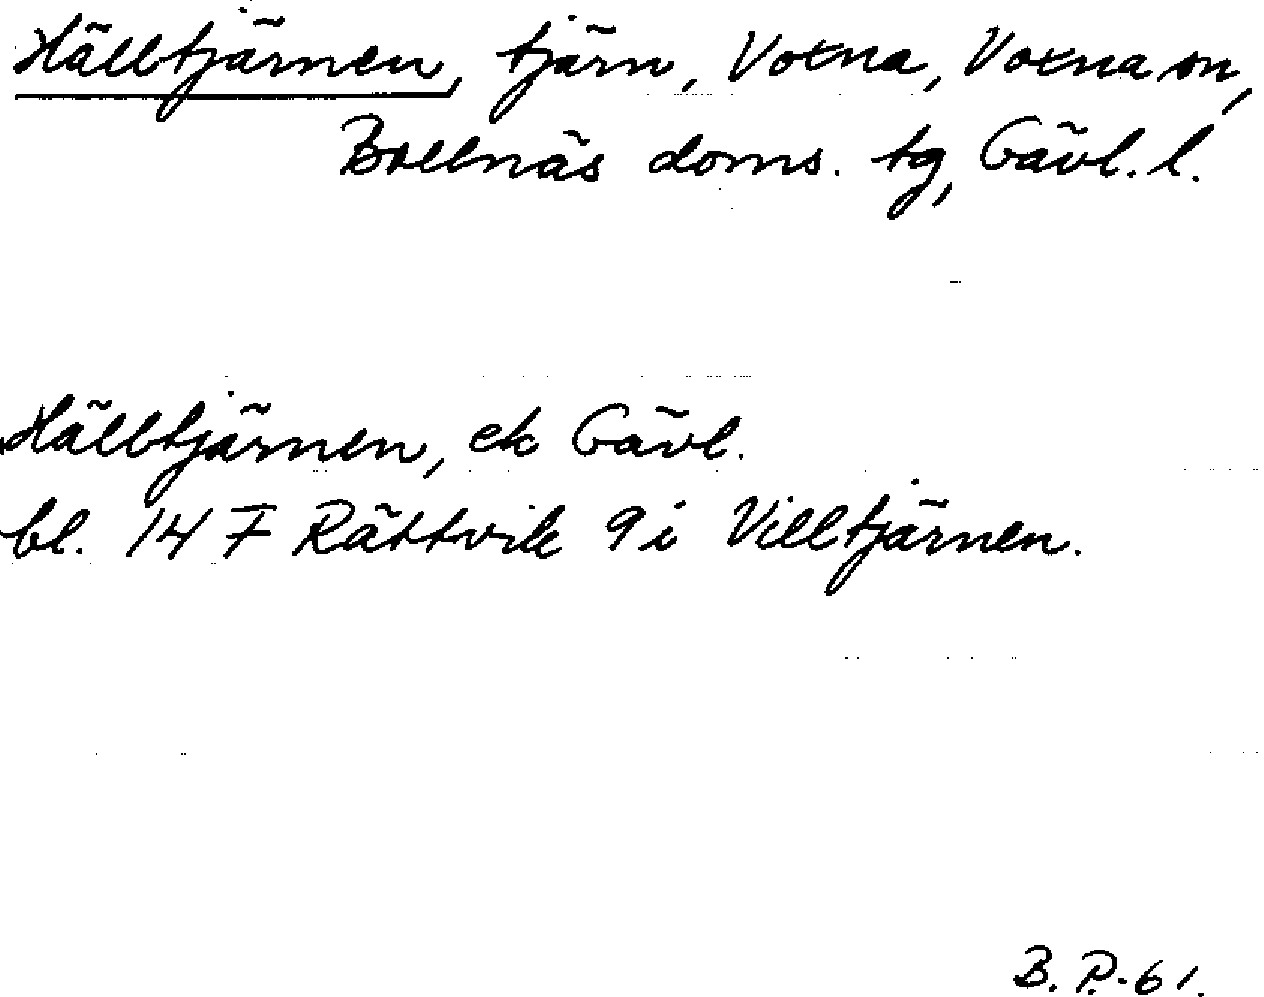 Hälltjärnen, tjärn, Voxna, Voxna sn,
Bollnäs doms. tg, Gävl. l.
Hälltjärnen, ek Gävl.
bl. 14 F Rättvik 9i Villtjärnen.
B. P.-61.